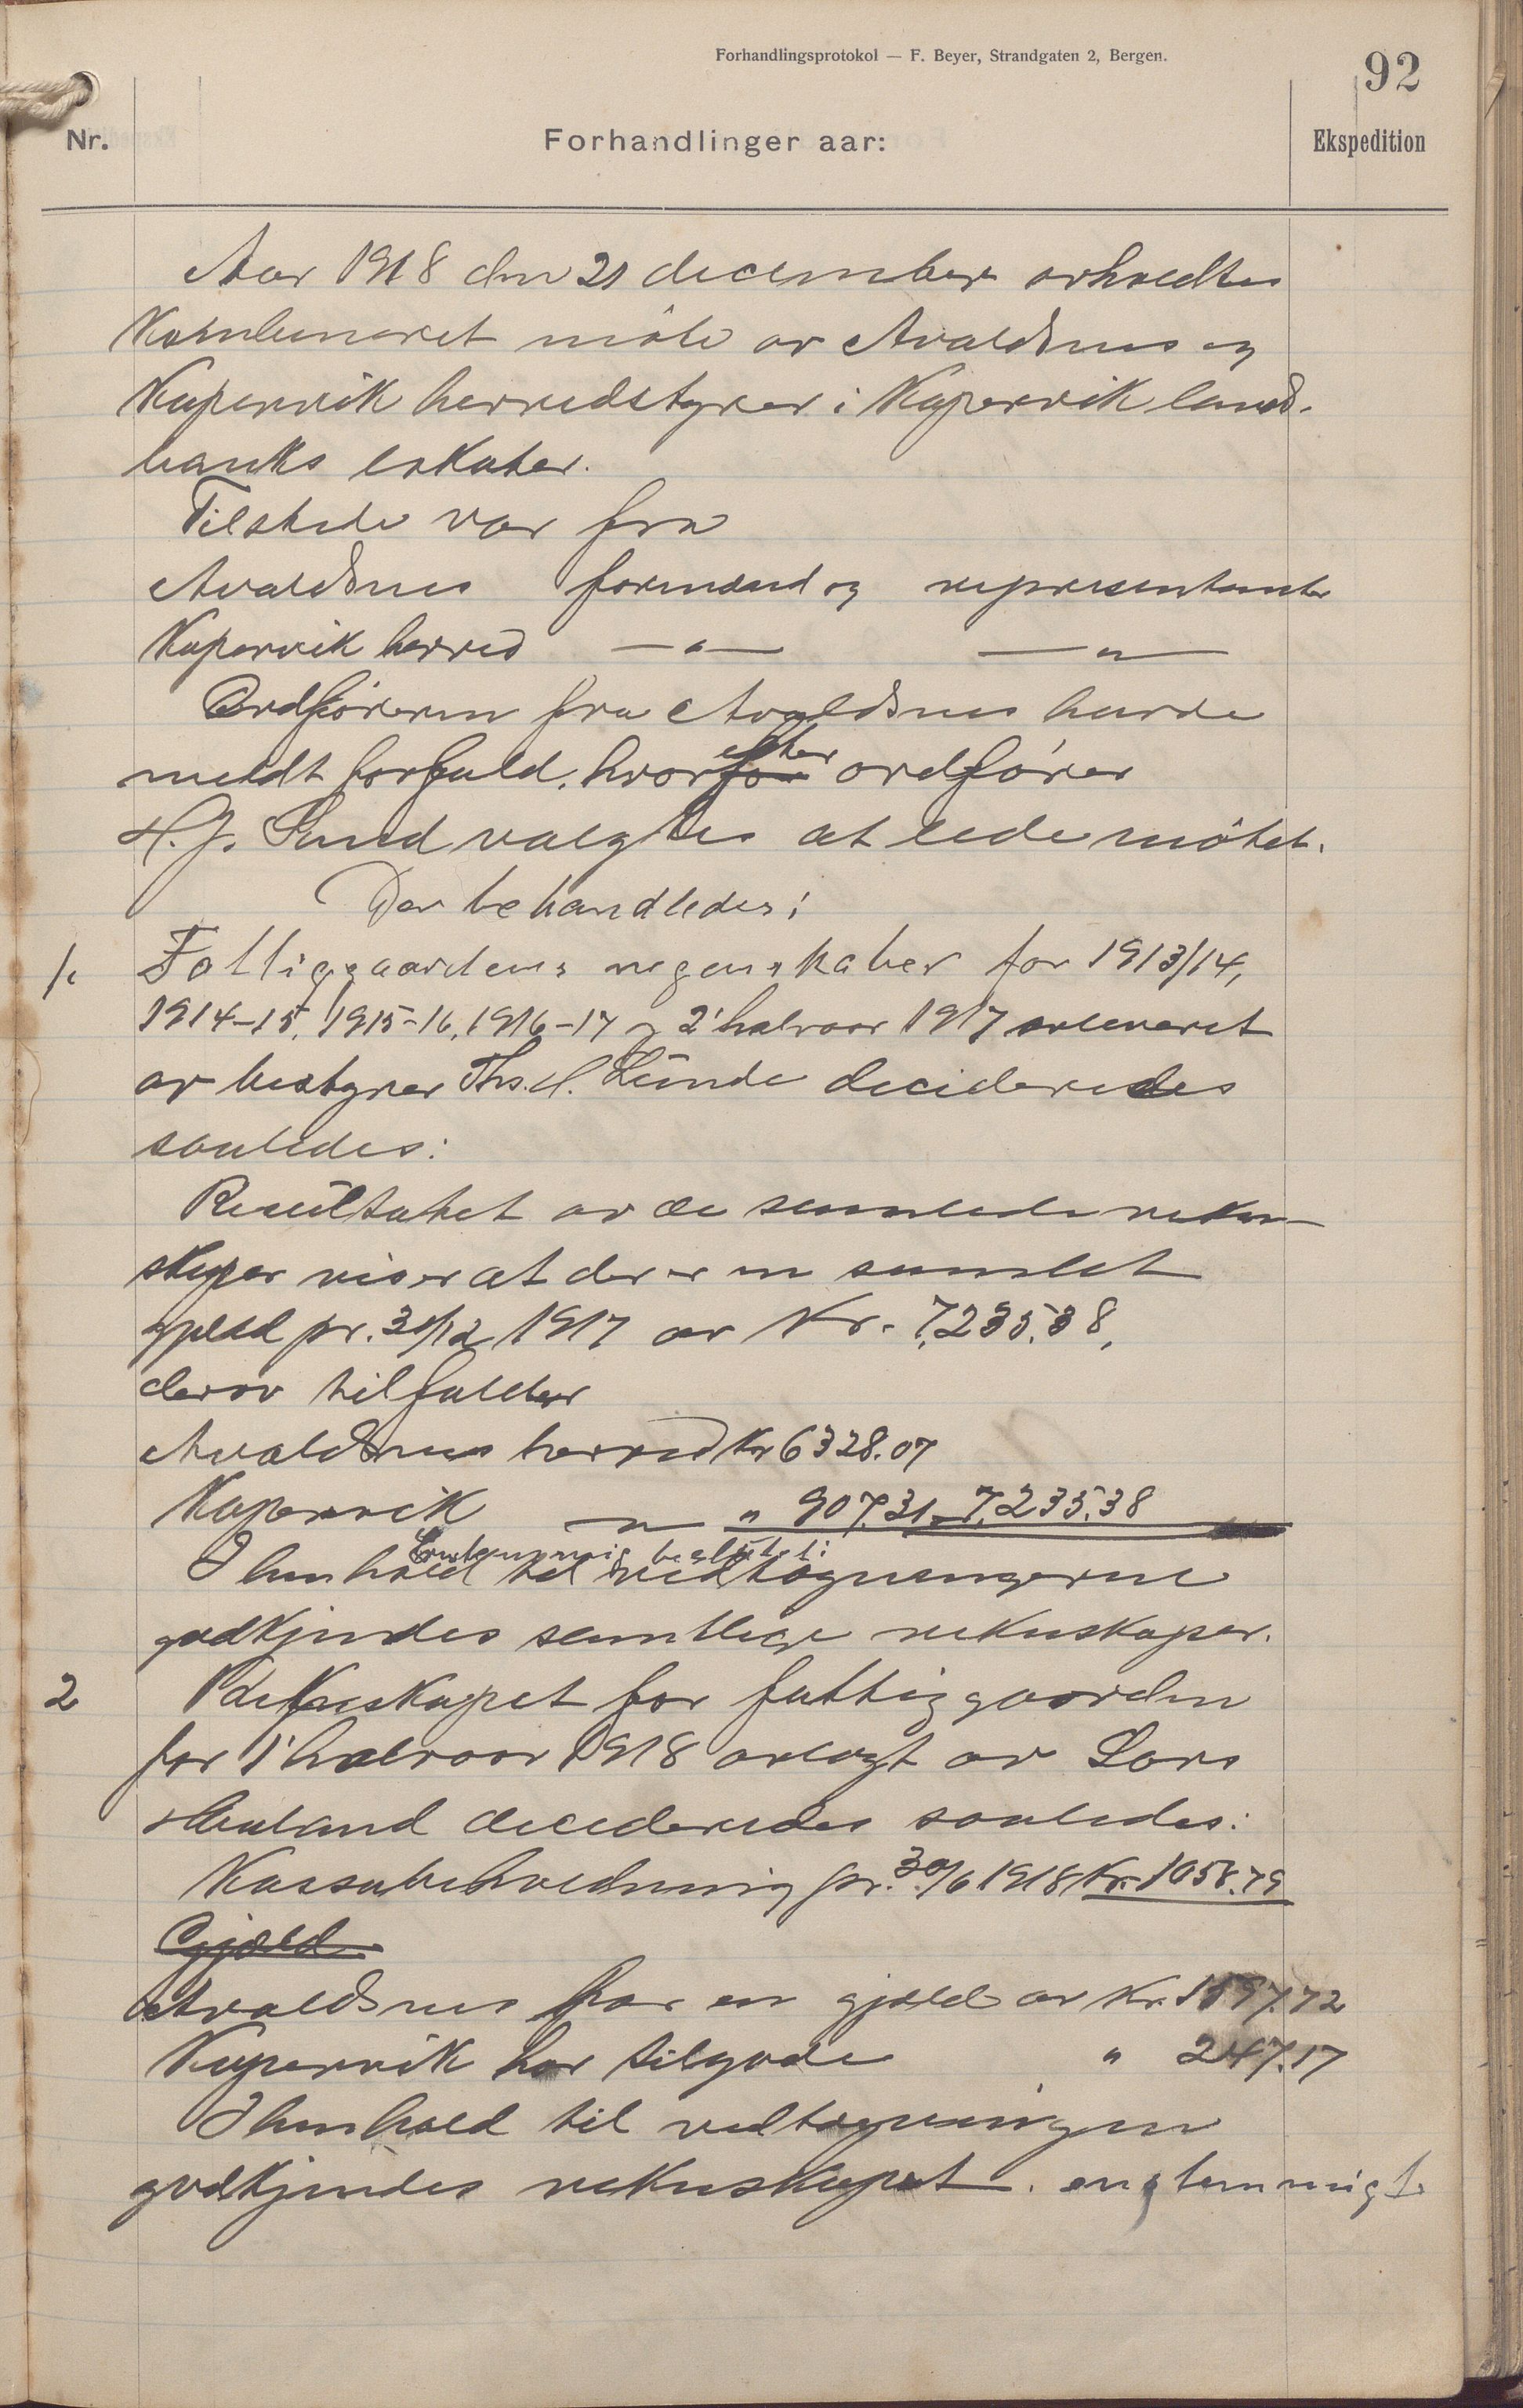 Forhandlingsprotokol — F. Beyer, Strandgaten 2, Bergen.
92
Nr.
Forhandlinger aar:
Ekspedition
Aar 1918 den 21 december avholdtes
Kombineret møte av Avaldsnes og
Kopervik herredstyrer i Kopervik land-
banks lokaler.
Tilstede var fra
Avaldsnes formænd og representanter
Kopervik herred —"— —"—
Ordføreren fra Avaldsnes havde
meldt forfald, hvorfor efter ordfører
H. J. Sund valgtes at lede møtet.
Der behandledes:
1. Fattiggaardens regenskaber for 1913/14,
1914-15, 1915-16, 1916-17 og 2' halvaar 1917 avleveret
av bestyrer Ths. L. Lunde decideredes
saaledes:
Resultatet av de samlede rekn-
skaper viser at der er en samlet
gjeld pr. 31/12 1917 av Kr. 7,235,38,
derav tilfalder
Avaldsnes herred Kr 6328.07
Kopervik — " — " 907,31 – 7,235,38
Enstemmig besluttet:
I henhold til vedtegningerne
godkjendes samtlige reknskaper.
2 Reknskapet for fattiggaarden
for 1' halvaar 1918 avlagt av Lars
Hauland decideredes saaledes:
Kassabeholdning pr. 30/6 1918 Kr. 1058.79
Gjæld
Avaldsnes har en gjæld av Kr. 1597.72
Kopervik har tilgode " 247.17
I henhold til vedtegningen
godkjendes reknskapet. enstemmigt.